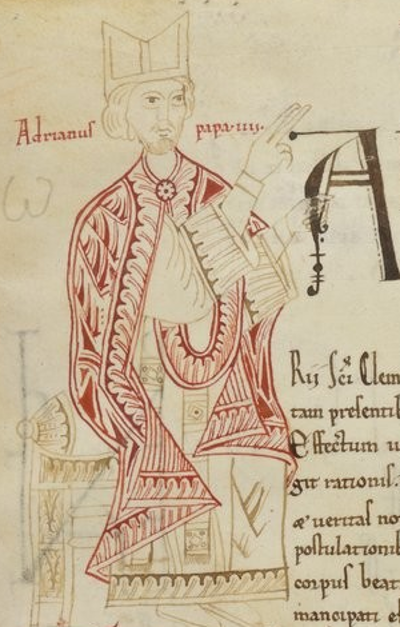 Adrianus papa·iiij·
A
Rij Sci Clem
tam presenti
Effectum u
git rationis.
æ ueritas no
postulationi
corpus beat
mancipati es